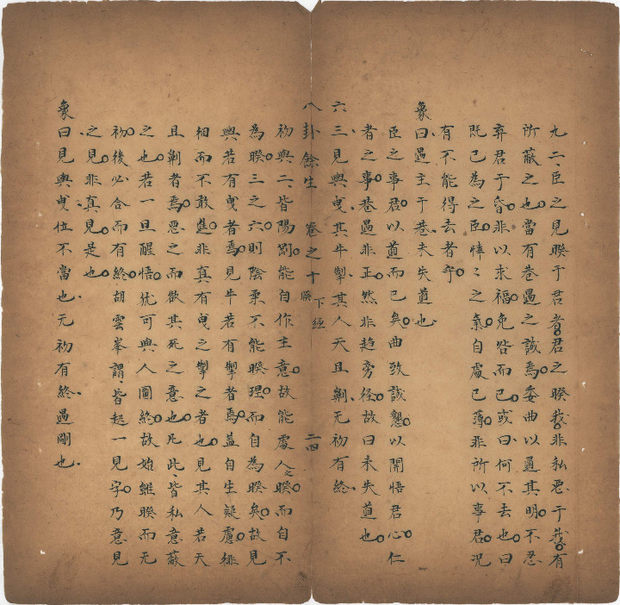 九二臣之見睽于君者君之睽我非私惡于我有
所蔽之也當有巷遇之誠焉委曲以通其明不忍
棄君于昏非以求福免咎而已或曰何不去也曰
既已為之臣悻〻之氣自處已薄非所以事君況
有不能得去者乎
象曰遇主于巷未失道也
臣之事君以道而已矣曲致誠懇以開悟君心仁
者之事巷遇非正然非趋旁徑故曰未失道也
六三見輿曳其牛掣其人天且劓无初有終
八卦餘生 卷之十 下經 睽 二四
初與二皆陽剛能自作主意故能處人之睽而自不
為睽三之六則陰柔不能睽理而自為睽矣故見
輿若有曳者焉見牛若有掣者焉蓋自生疑慮徘
徊而不敢進非真有曳之掣之者也見其人若天
且劓者焉惡之而欲其死之意也凡此皆私意蔽
之也若一旦醒悟犹可與人圖終故始雖睽而无
初後必合而有終胡雲峯謂皆起一見字乃意見
之見非真見是也
象曰見輿曳位不當也无初有終遇剛也